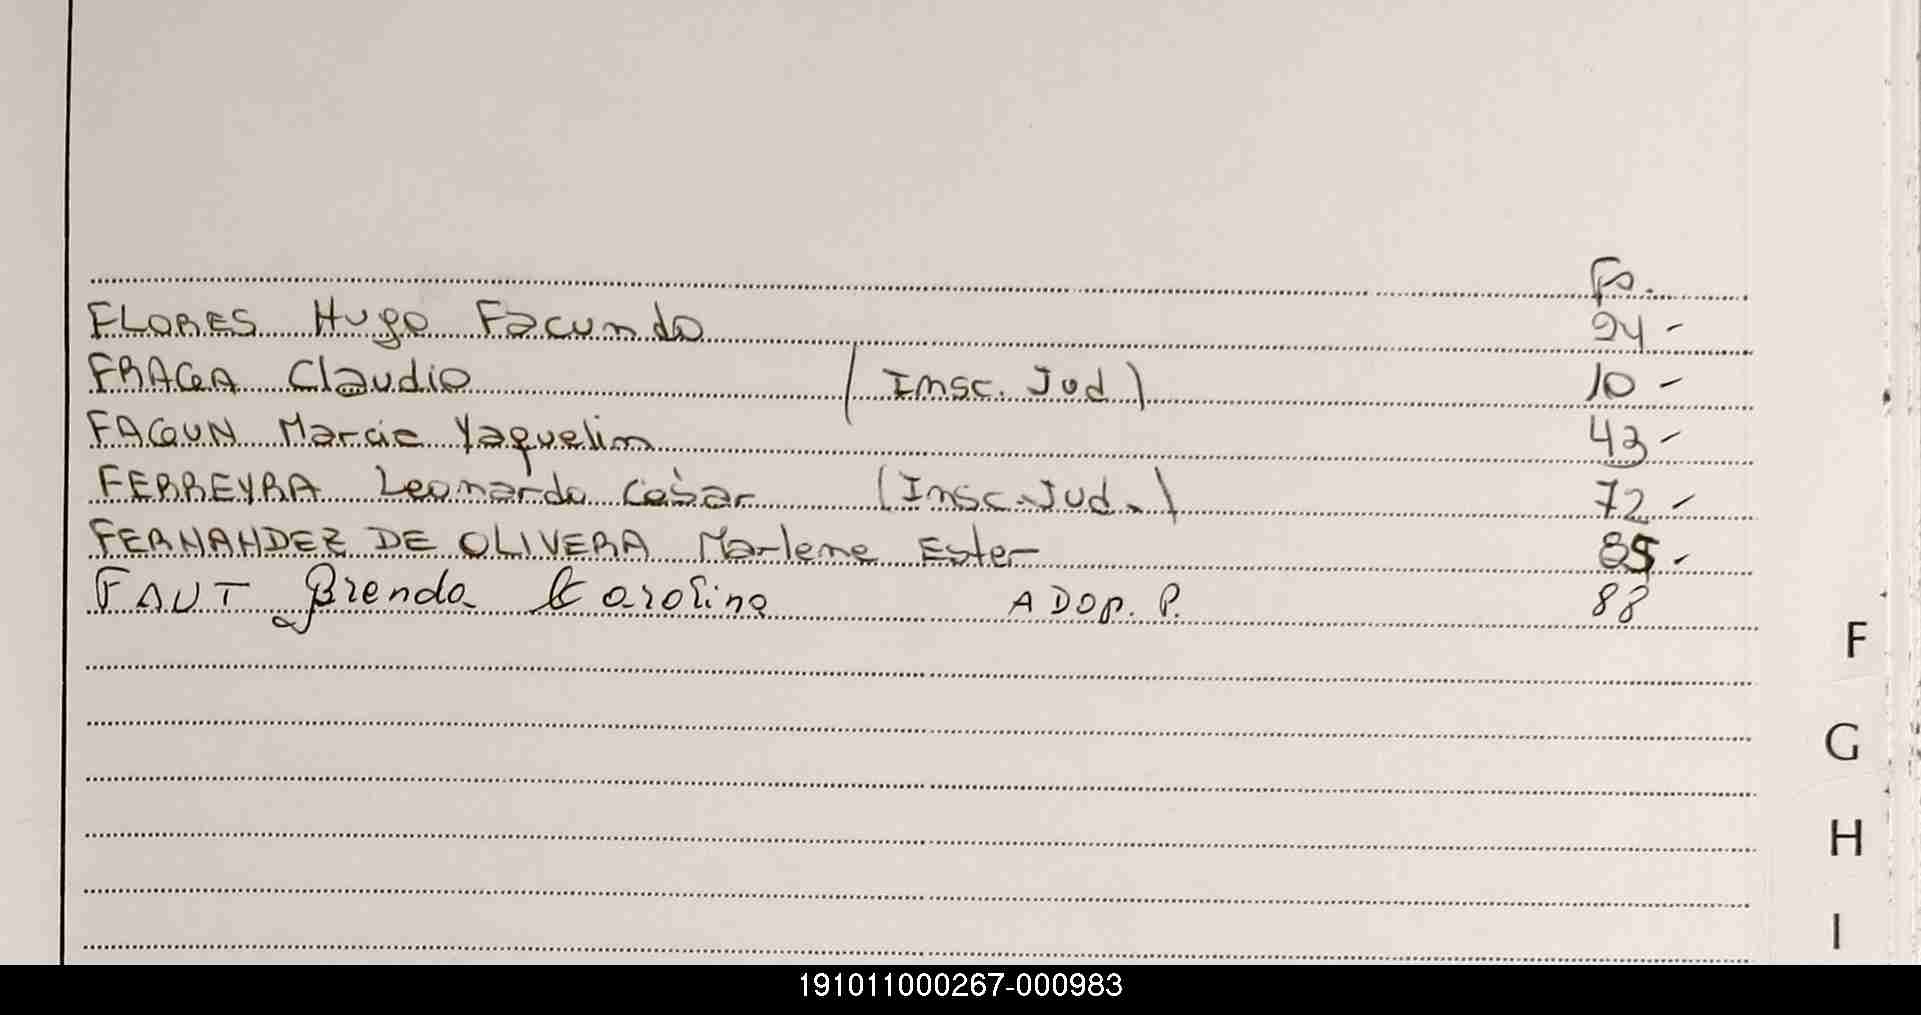 Fs.
FLORES Hugo Facundo 94 -
FRAGA Claudio (Insc. Jud) 10 -
FAGUN Marcia Yaquelin 43 -
FERREYRA Leonardo César (Insc. Jud.) 72 -
FERNANDEZ DE OLIVERA Marlene Ester 85 -
FAUT Brenda Karolina ADOP. P. 88
F
G
H
I
191011000267-000983